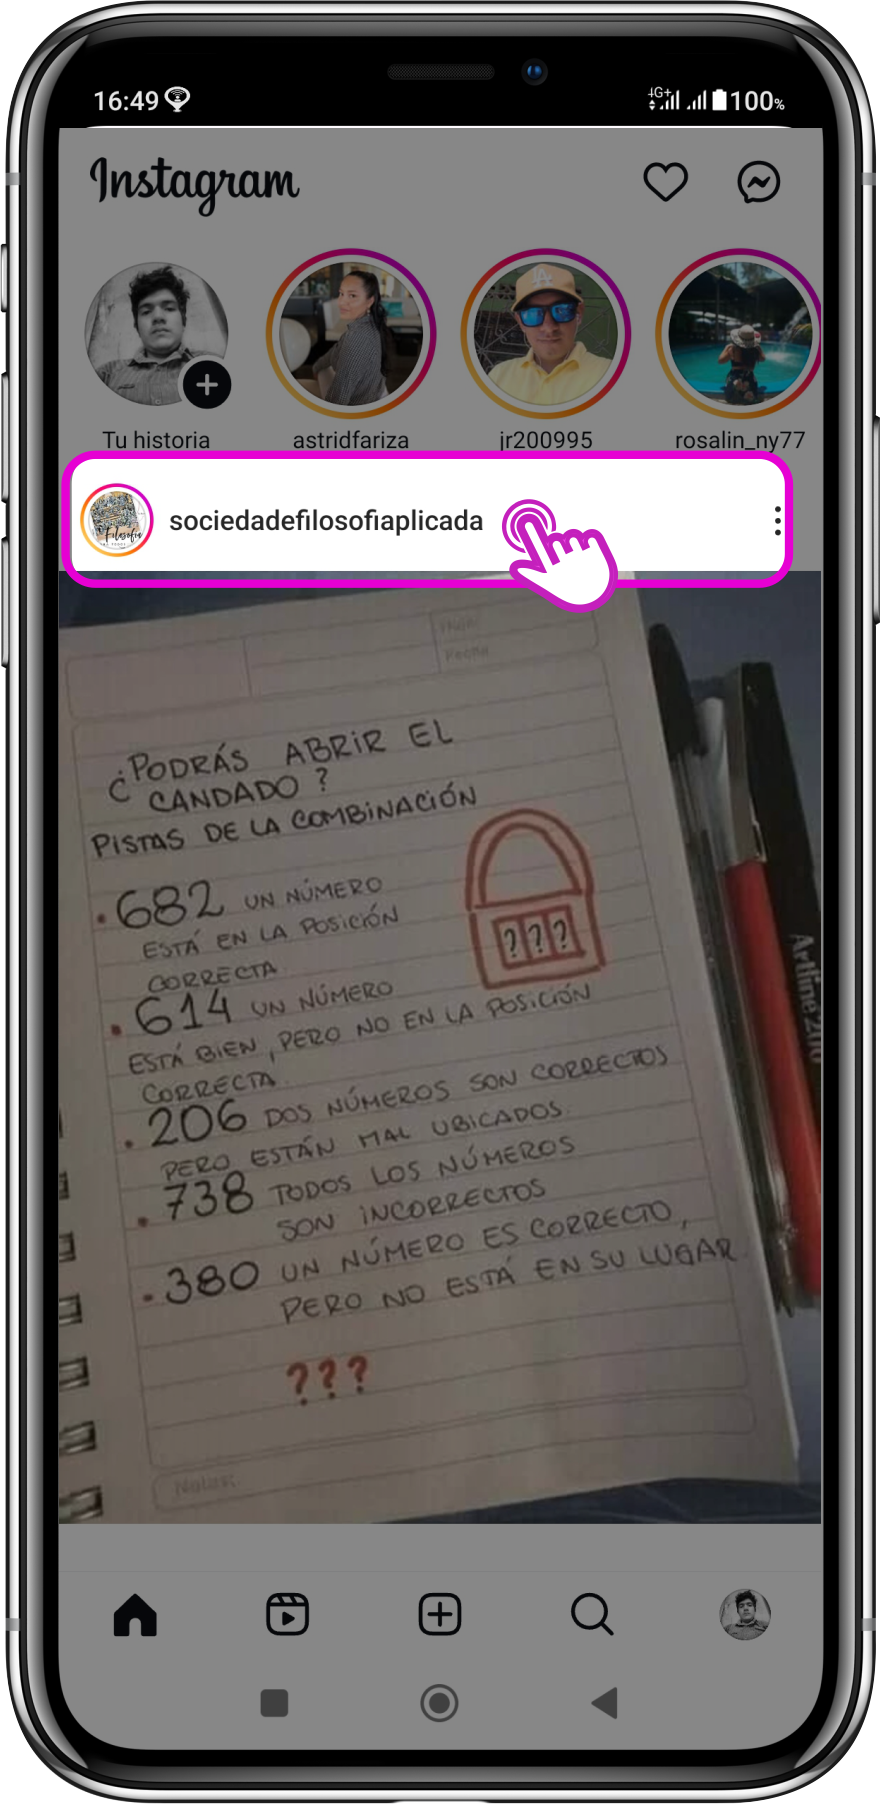 16:49
4G+ 100%
Instagram
LA
Tu historia astridfariza jr200995 rosalin_ny77
sociedadefilosofiaplicada
Filosofía
Hoja:
Fecha
¿PODRÁS ABRIR EL
CANDADO?
PISTAS DE LA COMBINACIÓN
• 682 UN NÚMERO
ESTÁ EN LA POSICIÓN
CORRECTA
???
• 614 UN NÚMERO
ESTÁ BIEN, PERO NO EN LA POSICIÓN
CORRECTA.
• 206 DOS NÚMEROS SON CORRECTOS
PERO ESTÁN MAL UBICADOS.
• 738 TODOS LOS NÚMEROS
SON INCORRECTOS
• 380 UN NÚMERO ES CORRECTO,
PERO NO ESTÁ EN SU LUGAR
???
Notas:
Artline 200